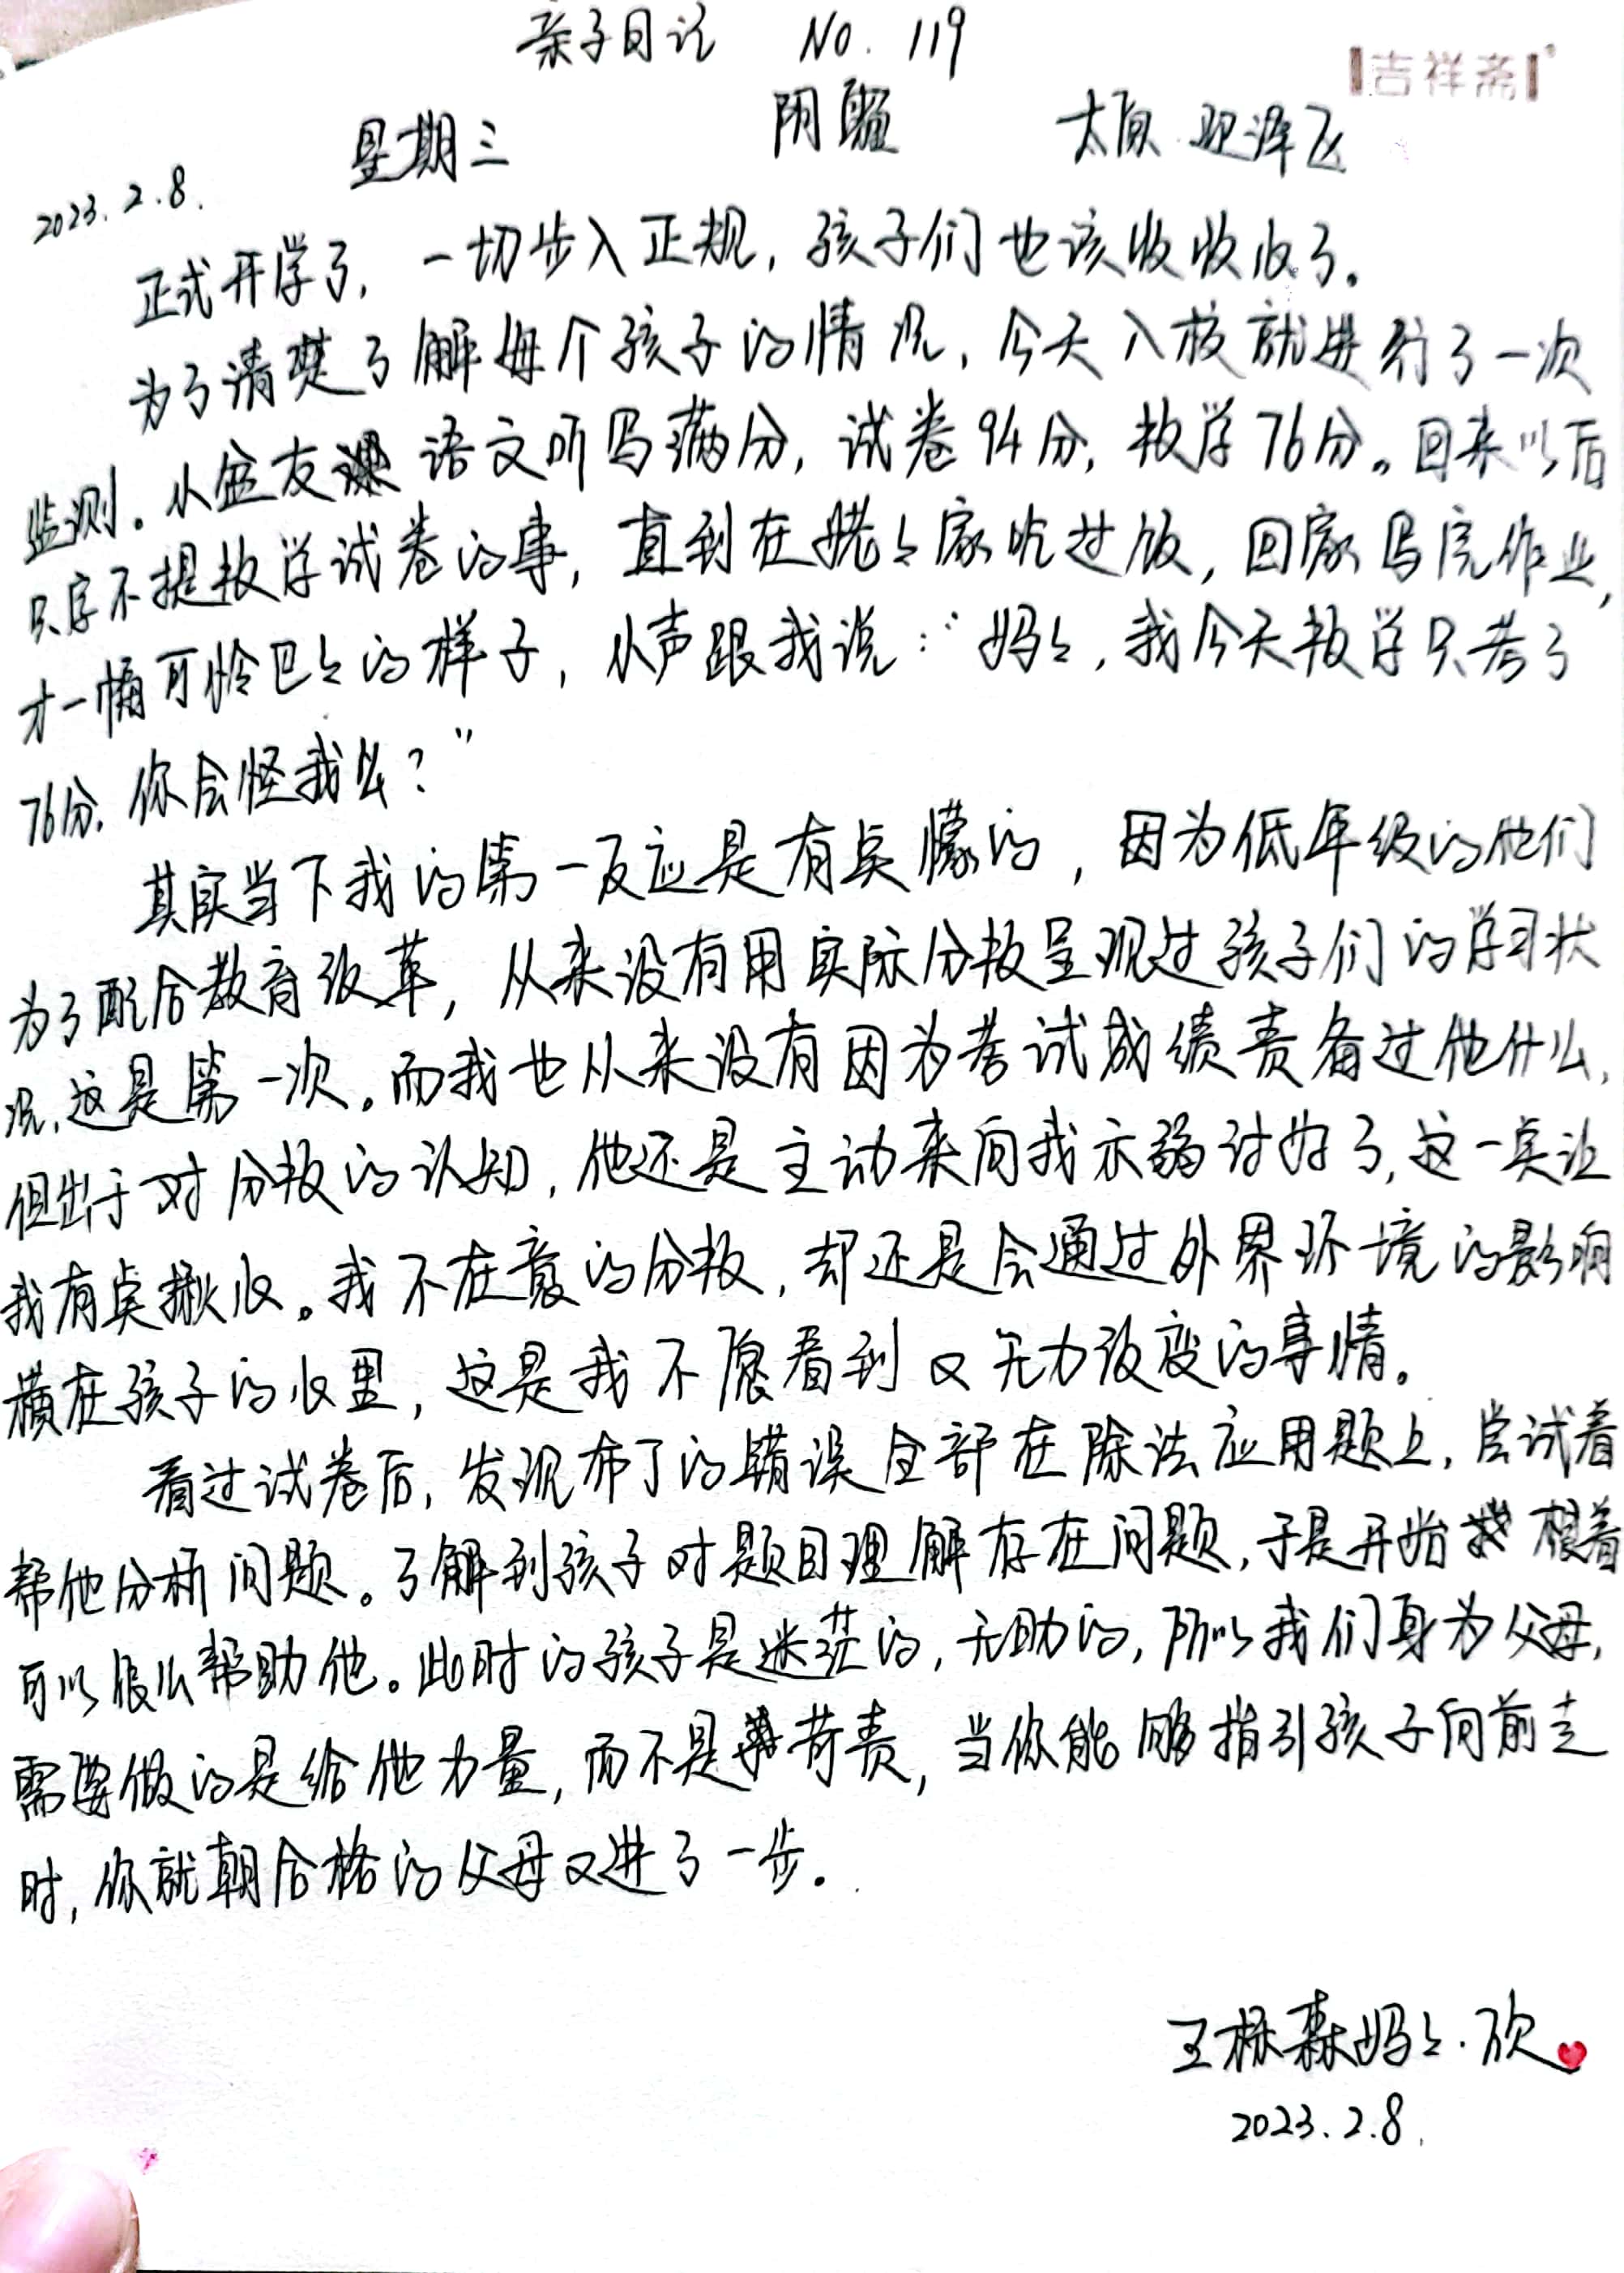 亲子日记 No. 119
吉祥斋
2023.2.8. 星期三 阴霾 太原 迎泽区
正式开学了，一切步入正规，孩子们也该收收心了。
为了清楚了解每个孩子的情况，今天入校就进行了一次
监测。小盆友 语文听写满分，试卷94分，数学76分。回来以后
只字不提数学试卷的事，直到在姥姥家吃过饭，回家写完作业，
才一幅可怜巴巴的样子，小声跟我说：“妈妈，我今天数学只考了
76分，你会怪我么？”
其实当下我的第一反应是有点懞的，因为低年级的他们
为了配合教育改革，从来没有用实际分数呈现过孩子们的学习状
况，这是第一次。而我也从来没有因为考试成绩责备过他什么，
但出于对分数的认知，他还是主动来向我示弱讨好了，这一点让
我有点揪心。我不在意的分数，却还是会通过外界环境的影响
横在孩子的心里，这是我不愿看到又无力改变的事情。
看过试卷后，发现布丁的错误全部在除法应用题上，尝试着
帮他分析问题。了解到孩子对题目理解存在问题，于是开始 想着
可以怎么帮助他。此时的孩子是迷茫的，无助的，所以我们身为父母，
需要做的是给他力量，而不是 苛责，当你能够指引孩子向前走
时，你就朝合格的父母又进了一步。
王栎森妈妈.欣
2023.2.8.